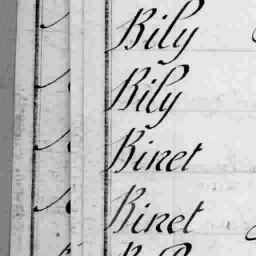 Bily
Bily
Binet
Binet